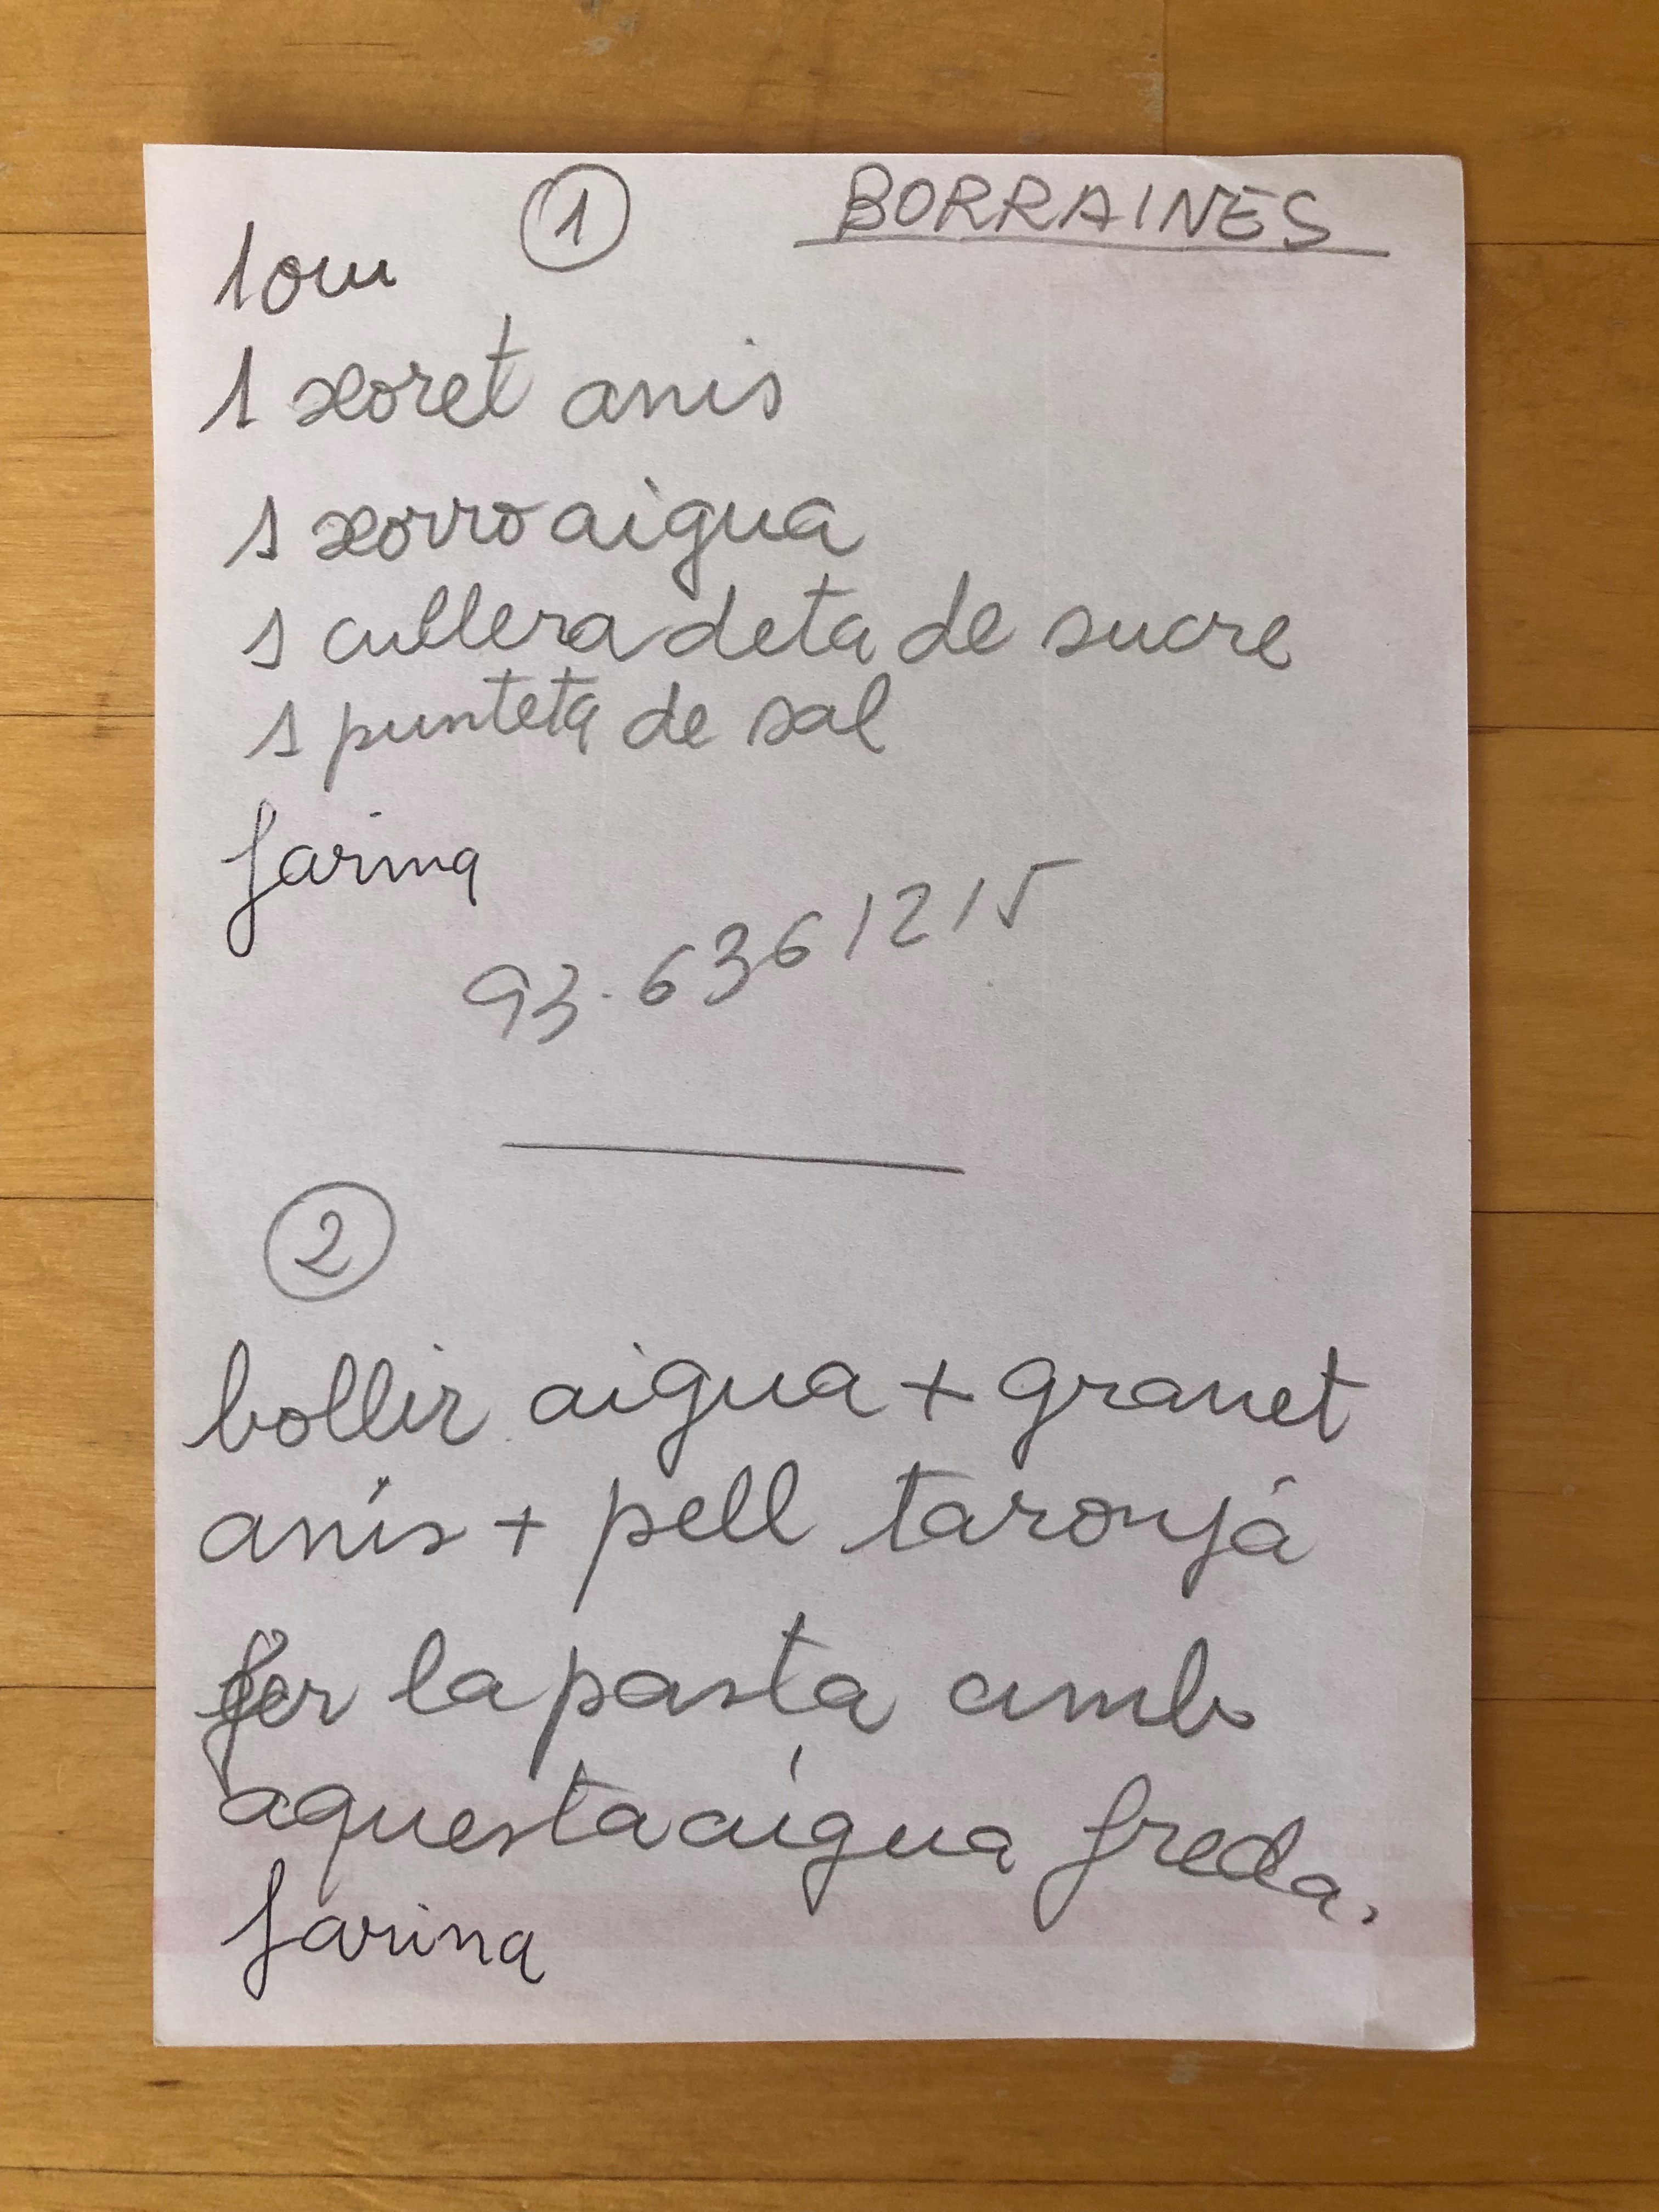 ① BORRAINES
1 ou
1 xoret anis
1 xorro aigua
1 culleradeta de sucre
1 punteta de sal
farina
93.6361215
②
bollir aigua + granet
anís + pell taronjá
fer la pasta amb
aquesta aigua freda.
farina